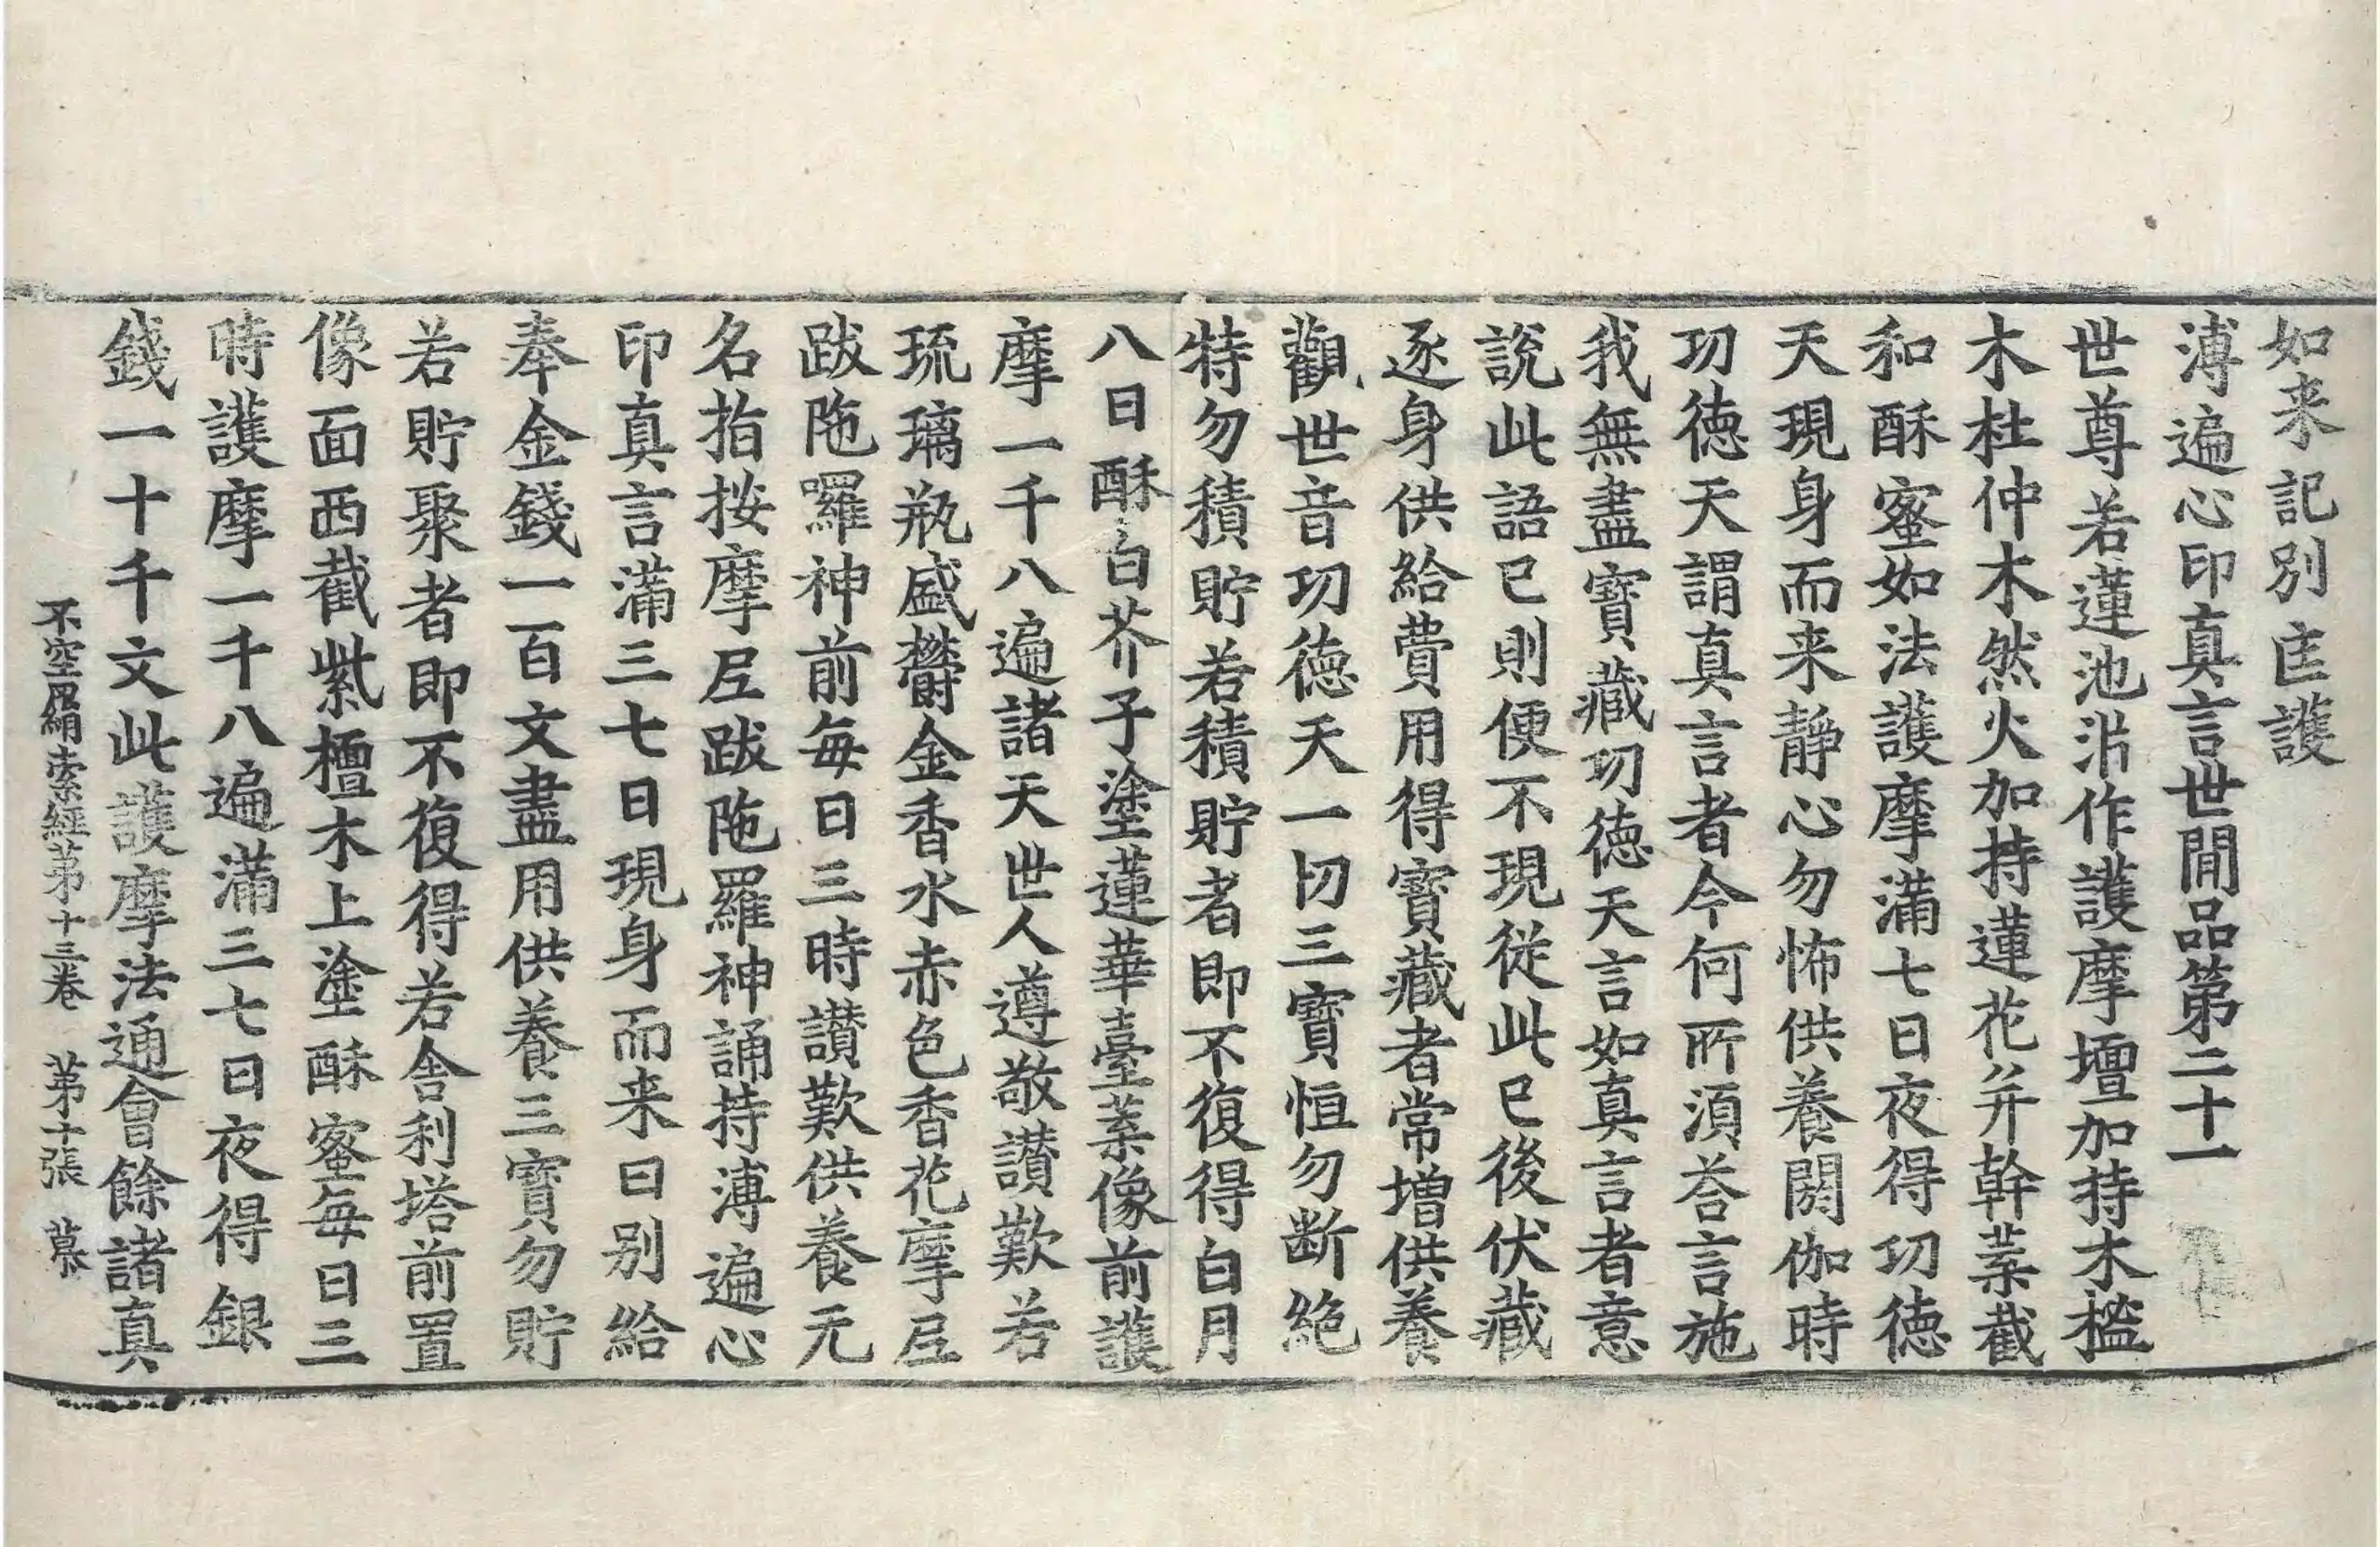 如来記別庄護
溥遍心印真言世閒品第二十一
世尊若蓮池沜作護摩壇加持木㯿
木杜仲木然火加持蓮花并幹葉截
和酥蜜如法護摩滿七日夜得㓛徳
天現身而来靜心勿怖供養閼伽時
㓛徳天謂真言者今何所湏荅言施
我無盡寶藏㓛徳天言如真言者意
說此語已則便不現從此已後伏藏
逐身供給費用得寶藏者常增供養
觀世音㓛徳天一切三寶恒勿斷絕
特勿積貯若積貯者即不復得白月
八日酥白芥子塗蓮華臺葉像前護
摩一千八遍諸天世人遵敬讃歎若
琉璃瓶盛欝金香水赤色香花摩㞐
跋陁囉神前每日三時讃歎供養无
名指按摩㞐跋陁羅神誦持溥遍心
印真言滿三七日現身而来曰别給
奉金錢一百文盡用供養三寶勿貯
若貯聚者即不復得若舍利塔前置
像面西截紫檀木上塗酥蜜每日三
時護摩一千八遍滿三七日夜得銀
錢一十千文此護摩法通會餘諸真
不空羂索經第十三卷 第十張 慕